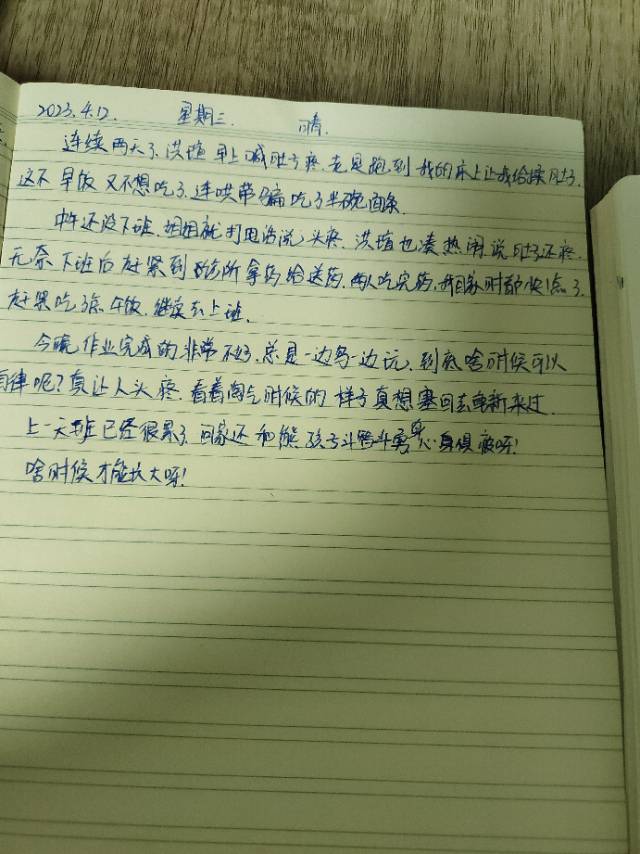 2023.4.12. 星期三. 晴.
连续两天了,洪瑄早上喊肚子疼,老是跑到我的床上让我给揉肚子.
这不早饭又不想吃了,连哄带骗吃了半碗面条.
中午还没下班,姐姐就打电话说头疼,洪瑄也凑热闹说肚子还疼.
无奈下班后赶紧到诊所拿药给送药,两人吃完药,我回家时都快1点了.
赶紧吃了点午饭,继续去上班.
今晚作业完成的非常不好,总是一边写一边玩,到底啥时候可以
自律呢?真让人头疼.看着淘气时候的样子真想塞回去重新来过.
上一天班已经很累了,回家还和熊孩子斗智斗勇,心身俱疲呀!
啥时候才能长大呀!